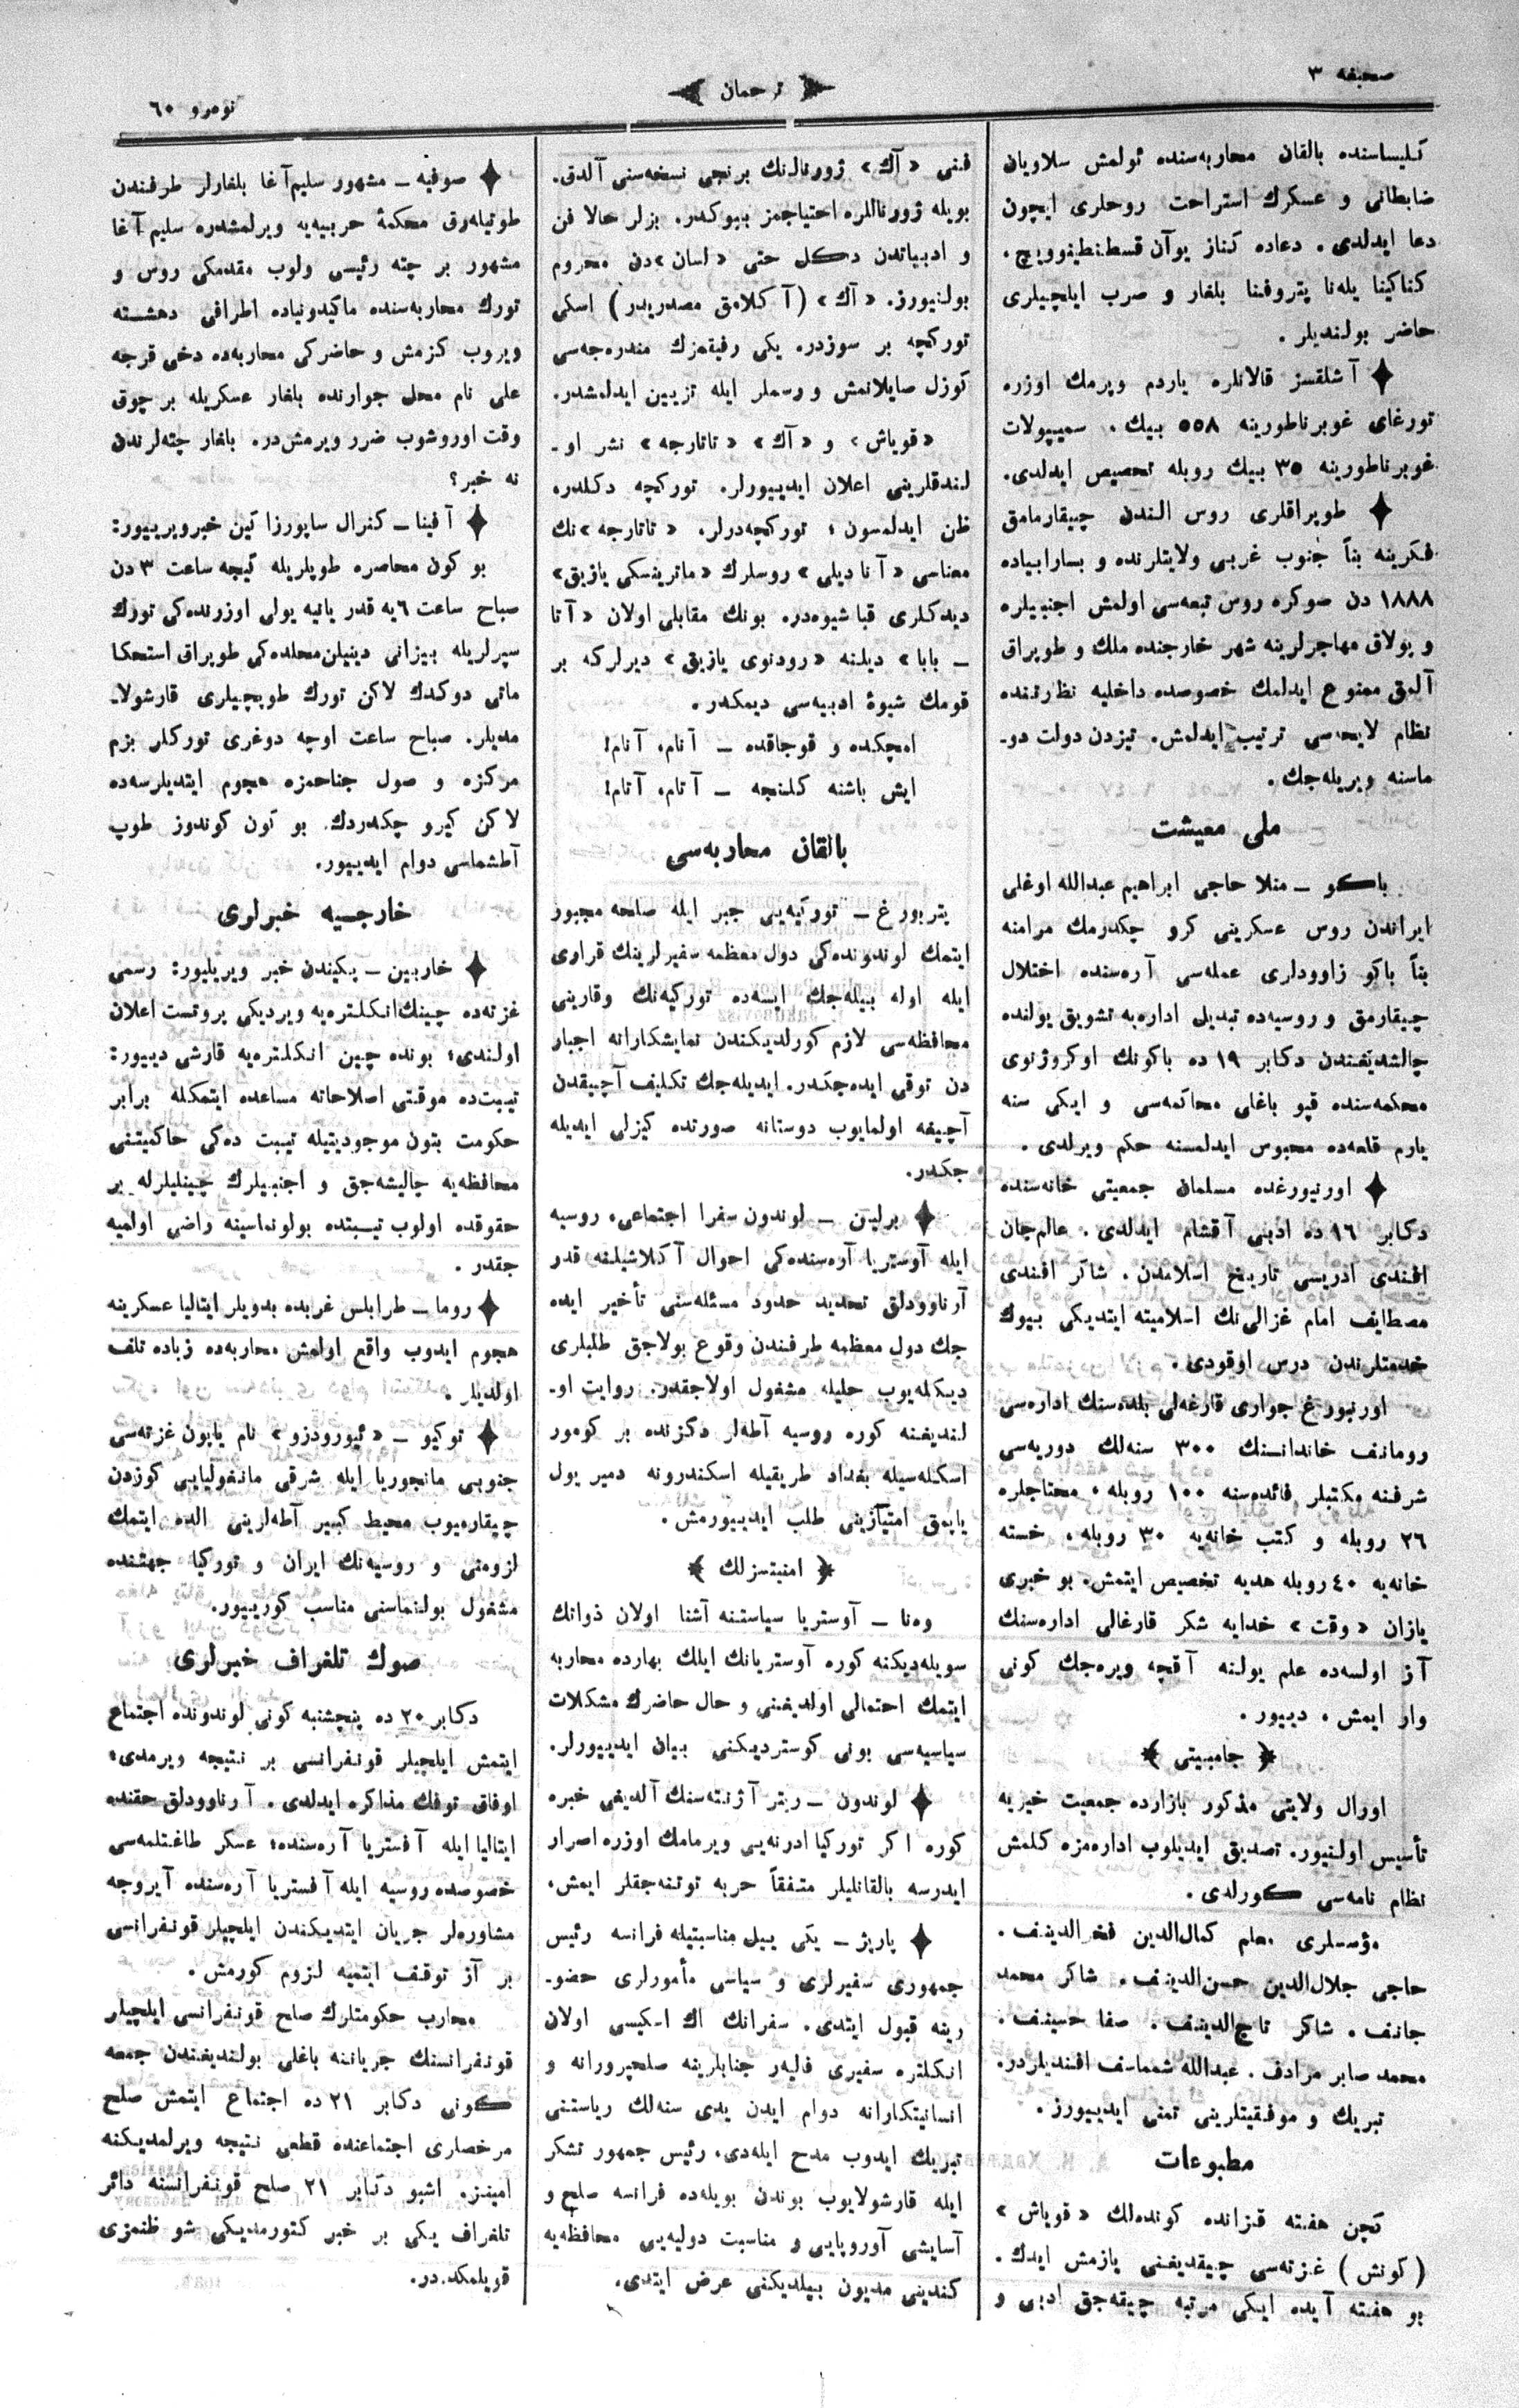 صحیفه ۳
ترجمان
نومرو ۶۰
كلیساسنده بالقان محاربه‌سنده ئولمش سلاویان
ضابطانی و عسكرك استراحت روحلری ایچون
دعا ایدلدی. دعاده كناز یوآن قسطنطینوویچ،
كناكینا یله‌نا پتروفنا بلغار و صرب ایلچیلری
حاضر بولندیلر.
آشلقسز قالانلره یاردم ویرمك اوزره
تورغای غوبرناطورینه ۵۵۸ بیك، سمیپولات
غوبرناطورینه ۳۵ بیك روبله تخصیص ایدلدی.
طوپراقلری روس الندن چیقارمامق
فكرینه بناً جنوب غربی ولایتلرنده و بسارابیاده
۱۸۸۸ دن صوكره روس تبعه‌سی اولمش اجنبیلره
و پولاق مهاجرلرینه شهر خارجنده ملك و طوپراق
آلمق ممنوع ایدلمك خصوصده داخلیه نظارتنده
نظام لایحه‌سی ترتیب ایدلمش. تیزدن دولت دو-
ماسنه ویریله‌جك.
ملی معیشت
باكو – منلا حاجی ابراهیم عبدالله اوغلی
ایراندن روس عسكرینی كرو چكدرمك مرامنه
بناً باكو زاوودلری عمله‌سی آره‌سنده اختلال
چیقارمق و روسیه‌ده تبدیل اداره‌یه تشویق یولنده
چالشدیغندن دكابر ۱۹ ده باكونك اوكروژنوی
محكمه‌سنده قپو باغلی محاكمه‌سی و ایكی سنه
یارم قلعه‌ده محبوس ایدلمسنه حكم ویرلدی.
اورنبورغده مسلمان جمعیتی خانه‌سنده
دكابر ۱۶ ده ادبی آقشام ایدلدی. عالم‌جان
افندی ادریسی تاریخ اسلامدن، شاكر افندی
مصطایف امام غزالی‌نك اسلامیته ایتدیكی بیوك
خدمتلرندن درس اوقودی.
اورنبورغ جواری قارغه‌لی بلده‌سنك اداره‌سی
رومانف خاندانسنك ۳۰۰ سنه‌لك دوریه‌سی
شرفنه مكتبلر فائده‌سنه ۱۰۰ روبله، محتاجلره
۲۶ روبله و كتب خانه‌یه ۳۰ روبله، خسته
خانه‌یه ۴۰ روبله هدیه تخصیص ایتمش. بو خبری
یازان «وقت» خدایه شكر قارغالی اداره‌سنك
آز اولسه‌ده علم یولنه آقچه ویره‌جك كونی
وار ایمش، دییور.
﴿ جامبیتی ﴾
اورال ولایتی مذكور بازارده جمعیت خیریه
تأسیس اولنیور. تصدیق ایدیلوب اداره‌مزه كلمش
نظام نامه‌سی كورلدی.
مؤسسلری معلم كمال‌الدین فخرالدینف،
حاجی جلال‌الدین حسن‌الدینف، شاكر محمد
جانف، شاكر تاج‌الدینف، صفا حسینف،
محمد صابر مرادف، عبدالله شمماسف افندیلردر.
تبریك و موفقیتلرینی تمنی ایدییورز.
مطبوعات
كچن هفته قزانده كونده‌لك «قویاش»
(كونش) غزته‌سی چیقدیغنی یازمش ایدك.
بو هفته آیده ایكی مرتبه چیقه‌جق ادبی و
فنی «آك» ژورنالنك برنجی نسخه‌سنی آلدق.
بویله ژورناللره احتیاجمز بیوكدر. بزلر حالا فن
و ادبیاتدن دكل حتی «لسان»دن محروم
بولنیورز. «آك» (آكلامق مصدریدر) اسكی
توركچه بر سوزدر. یكی رفیقمزك مندرجه‌سی
كوزل صایلانمش و رسملر ایله تزیین ایدلمشدر.
«قویاش» و «آك» «تاتارجه» نشر او-
لندقلرینی اعلان ایدییورلر. توركچه دكلدر،
ظن ایدلمسون؛ توركچه‌درلر. «تاتارجه»نك
معناسی «آنا دیلی» روسلرك «ماترینسكی یازیق»
دیدكلری قبا شیوه‌در. بونك مقابلی اولان «آتا
– بابا» دیلنه «رودنوی یازیق» دیرلركه بر
قومك شیوهٔ ادبیه‌سی دیمكدر.
امچكده و قوجاقده – آنام، آنام!
ایش باشنه كلنجه – آتام، آتام!
بالقان محاربه‌سی
پتربورغ – توركیه‌یی جبر ایله صلحه مجبور
ایتمك لوندونده‌كی دول معظمه سفیرلرینك قراری
ایله اوله بیله‌جك ایسه‌ده توركیه‌نك وقارینی
محافظه‌سی لازم كورلدیكندن نمایشكارانه اجبار
دن توقی ایده‌جكدر. ایدیله‌جك تكلیف آچیقدن
آچیغه اولمایوب دوستانه صورتده كیزلی ایدیله
جكدر.
برلین – لوندون سفرا اجتماعی، روسیه
ایله آوستریا آره‌سنده‌كی احوال آكلاشیلنه قدر
آرناوودلق تحدید حدود مسئله‌سنی تأخیر ایده
جك دول معظمه طرفندن وقوع بولاجق طلبلری
دیكله‌یوب حلیله مشغول اولاجقدر. روایت او-
لندیغنه كوره روسیه آطه‌لر دكزنده بر كومور
اسكله‌سیله بغداد طریقیله اسكندرونه دمیر یول
یاپمق امتیازینی طلب ایدییورمش.
﴿ امنیتسزلك ﴾
وه‌نا – آوستریا سیاستنه آشنا اولان ذواتك
سویله‌دیكنه كوره آوستریانك ایلك بهارده محاربه
ایتمك احتمالی اولدیغنی و حال حاضرك مشكلات
سیاسیه‌سی بونی كوستردیكنی بیان ایدییورلر.
لوندون – ریتر آژنته‌سنك آلدیغی خبره
كوره اكر توركیا ادرنه‌یی ویرمامك اوزره اصرار
ایدرسه بالقانلیلر متفقاً حربه توتنه‌جقلر ایمش.
پاریژ – یكی ییل مناسبتیله فرانسه رئیس
جمهوری سفیرلری و سیاسی مأمورلری حضو-
رینه قبول ایتدی. سفرانك اك اسكیسی اولان
انكلتره سفیری فالیه‌ر جنابلرینه صلحپرورانه و
انسانیتكارانه دوام ایدن یدی سنه‌لك ریاستنی
تبریك ایدوب مدح ایله‌دی، رئیس جمهور تشكر
ایله قارشولایوب بوندن بویله‌ده فرانسه صلح و
آسایشی آوروپایی و مناسبت دولیه‌یی محافظه‌یه
كندینی مدیون بیلدیكنی عرض ایتدی.
صوفیه – مشهور سلیم آغا بلغارلر طرفندن
طوتیله‌رق محكمهٔ حربیه‌یه ویرلمشدر. سلیم آغا
مشهور بر چته رئیسی ولوب مقدمكی روس و
تورك محاربه‌سنده ماكیدونیاده اطرافی دهشته
ویروب كزمش و حاضركی محاربه‌ده دخی قرجه
علی نام محل جوارنده بلغار عسكریله بر چوق
وقت اوروشوب ضرر ویرمش‌در. بلغار چته‌لرندن
نه خبر؟
آفینا – كنرال ساپورزاكین خبر ویرییور:
بو كون محاصره طوپلریله كیجه ساعت ۳ دن
صباح ساعت ۶ یه قدر یانیه یولی اوزرنده‌كی تورك
سپرلریله بیزانی دینیلن محلده‌كی طوپراق استحكا
ماتی دوكدك لاكن تورك طوپچیلری قارشولا-
مدیلر. صباح ساعت اوچه دوغری توركلر بزم
مركزه و صول جناحمزه هجوم ایتدیلرسه‌ده
لاكن كیرو چكدردك. بو كون كوندوز طوپ
آطشماسی دوام ایدییور.
خارجیه خبرلری
خاربین – پكیندن خبر ویریلیور: رسمی
غزته‌ده چینك انكلتره‌یه ویردیكی پروتست اعلان
اولندی؛ بونده چین انكلتره‌یه قارشی دییور:
تیبت‌ده موقتی اصلاحاته مساعده ایتمكله برابر
حكومت بتون موجودیتیله تیبت ده‌كی حاكمیتنی
محافظه‌یه چالیشه‌جق و اجنبیلرك چینلیلرله بر
حقوقده اولوب تیبتده بولونماسینه راضی اولمیه
جقدر.
روما – طرابلس غربده بدویلر ایتالیا عسكرینه
هجوم ایدوب واقع اولمش محاربه‌ده زیاده تلف
اولدیلر.
توكیو – «ئیورودزو» نام یاپون غزته‌سی
جنوبی مانجوریا ایله شرقی مانغولیایی كوزدن
چیقارمیوب محیط كبیر آطه‌لرینی الده ایتمك
لزومنی و روسیه‌نك ایران و توركیا جهتنده
مشغول بولنماسنی مناسب كورییور.
صوك تلغراف خبرلری
دكابر ۲۰ ده پنچشنبه كونی لوندونده اجتماع
ایتمش ایلچیلر قونفرانسی بر نتیجه ویرمدی؛
اوفاق توفك مذاكره ایدلدی. آرناوودلق حقنده
ایتالیا ایله آفستریا آره‌سنده؛ عسكر طاغتلمه‌سی
خصوصده روسیه ایله آفستریا آره‌سنده آیروجه
مشاوره‌لر جریان ایتدیكندن ایلچیلر قونفرانسی
بر آز توقف ایتمیه لزوم كورمش.
محارب حكومتلرك صلح قونفرانسی ایلچیلر
قونفرانسنك جریاننه باغلی بولندیغندن جمعه
كونی دكابر ۲۱ ده اجتماع ایتمش صلح
مرخصلری اجتماعنده قطعی نتیجه ویرلمدیكنه
امینز. اشبو دكابر ۲۱ صلح قونفرانسنه دائر
تلغراف یكی بر خبر كتورمدیكی شو ظنمزی
قویلمكده‌در.